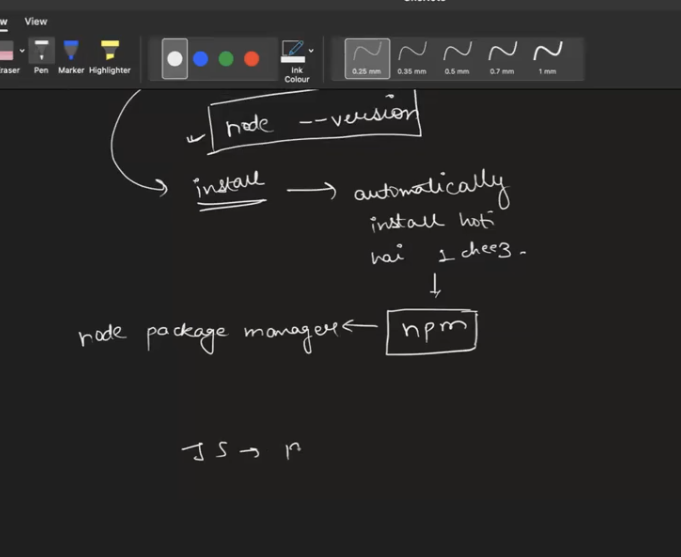 View
Pen Marker Highlighter
Ink
Colour
0.25 mm 0.35 mm 0.5 mm 0.7 mm 1 mm
node --version
install → automatically
install hoti
hai 1 cheez.
↓
node package manager ← npm
JS →